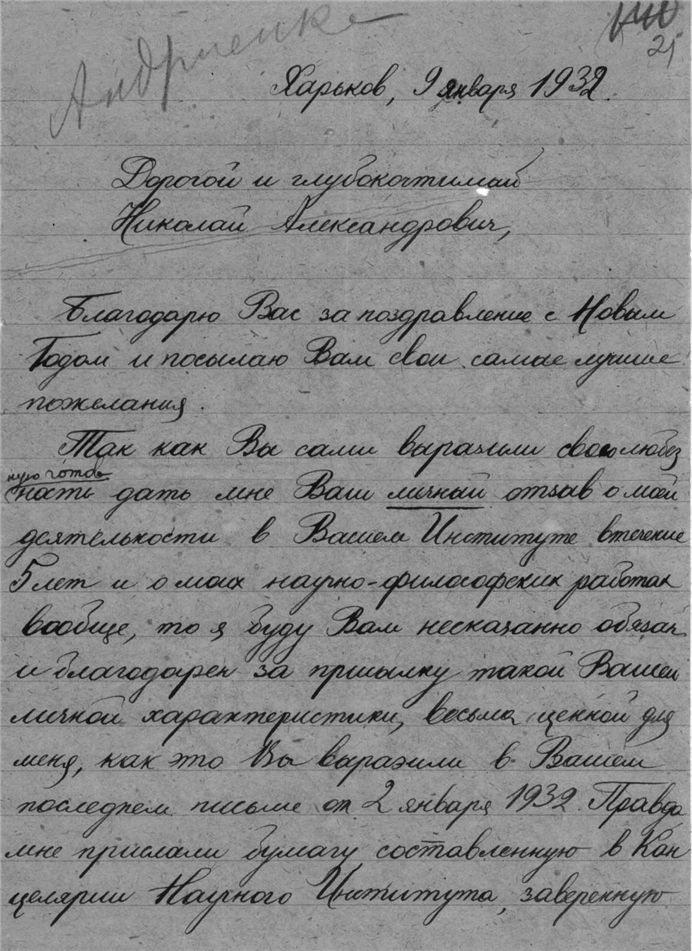 Андриенко
21
Харьков, 9 января 1932.
Дорогой и глубокочтимый
Николай Александрович,
Благодарю Вас за поздравление с Новым
Годом и посылаю Вам свои самые лучшие
пожелания.
Так как Вы сами выразили свою любез
ную готов
ность дать мне Ваш личный отзыв о моей
деятельности в Вашем Институте в течение
5 лет и о моих научно-философских работах
вообще, то я буду Вам несказанно обязан
и благодарен за присылку такой Вашей
личной характеристики, весьма ценной для
меня, как это Вы выразили в Вашем
последнем письме от 2 января 1932. Правда
мне прислали бумагу, составленную в Кан
целярии Научного Института, заверенную